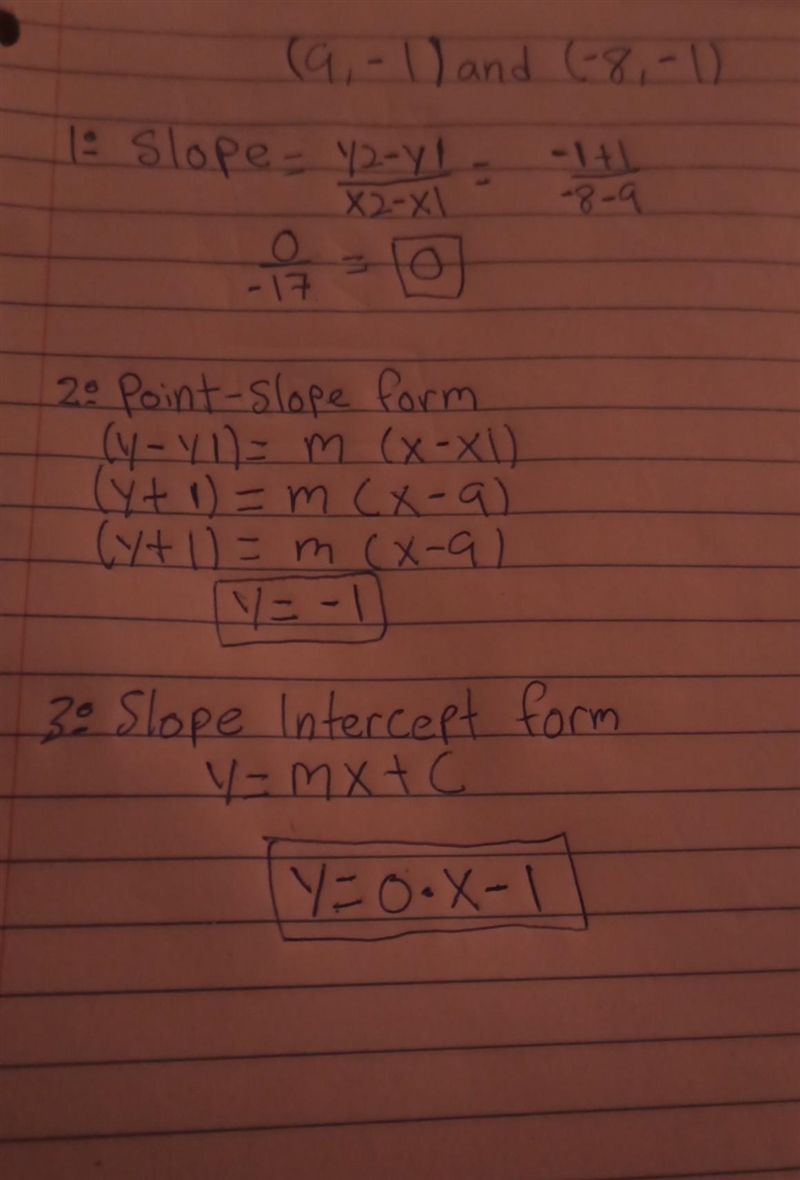 (9,-1) and (-8,-1)
1: Slope = y2-y1/x2-x1 = -1+1/-8-9
0/-17 = 0
2: Point-Slope form
(y-y1) = m (x-x1)
(y+1) = m (x-9)
(y+1) = m (x-9)
y = -1
3: Slope Intercept form
y = mx + C
y = 0·x-1